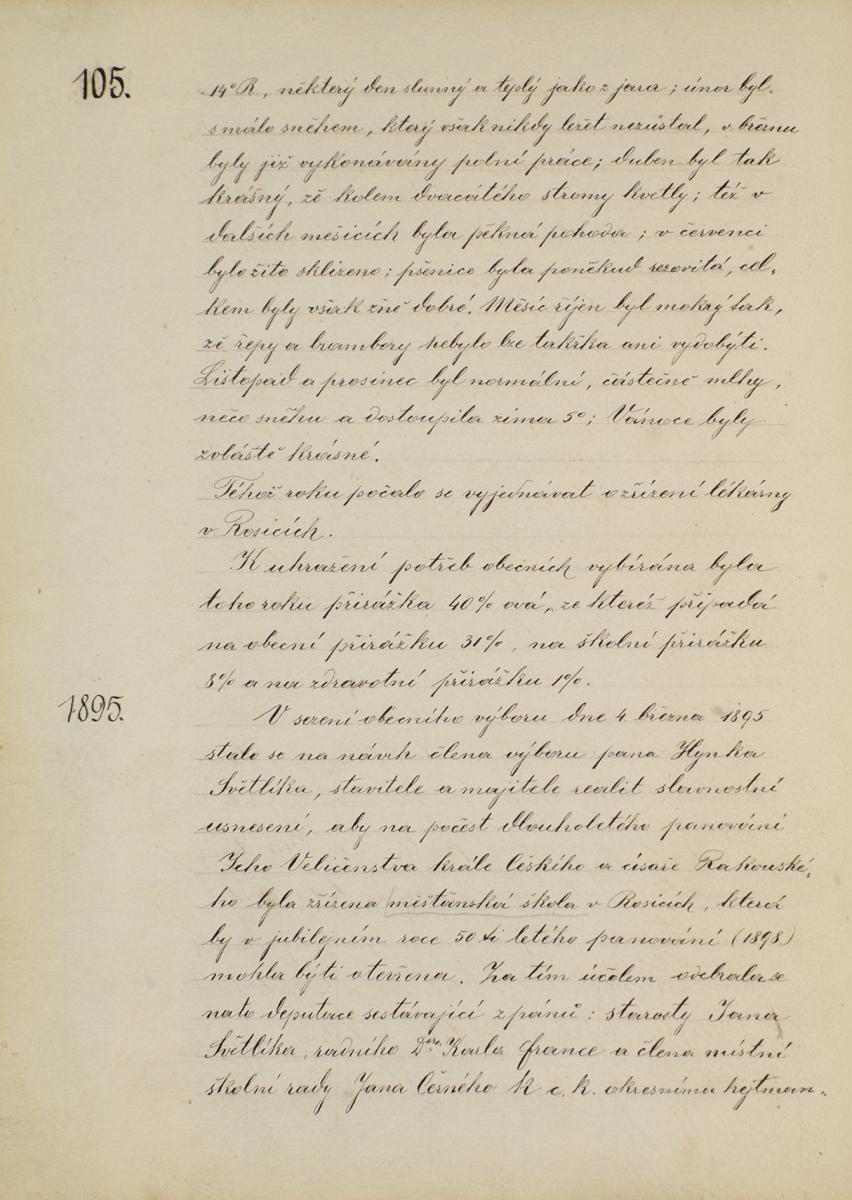 105.
14° R., některý den slunný a teplý jako z jara; únor byl
s málo sněhem, který však nikdy ležet nezůstal, v březnu
byly již vykonávány polní práce; duben byl tak
krásný, zě kolem dvacátého stromy kvetly; též v
dalších měsicích byla pěkná pohoda; v červenci
bylo žito sklizeno; pšenice byla poněkud rezovitá, cel-
kem byly však žně dobré. Měsíc říjen byl mokrý tak,
zě řepy a brambory nebylo lze takřka ani vydobýti.
Listopad a prosinec byl normální, částečně mlhy,
něco sněhu a dostoupila zima 5°; Vánoce byly
zvláště krásné.
Téhož roku počalo se vyjednávat o zřízení lékárny
v Rosicích.
K uhražení potřeb obecních vybírána byla
toho roku přirážka 40% ová, ze kteréž připadá
na obecní přirážku 31%, na školní přirážku
8% a na zdravotní přirážku 1%.
1895.
V sezení obecního výboru dne 4. března 1895
stalo se na návrh člena výboru pana Hynka
Světlíka, stavitele a majitele realit slavnostní
usnesení, aby na počest dlouholetého panování
Jeho Veličenstva krále českého a císaře Rakouské-
ho byla zřízena měšťanská škola v Rosicích, která
by v jubilejním roce 50 ti letého panování (1898)
mohla býti otevřena. Za tím účelem odebrala se
nato deputace sestávající z pánů: starosty Jana
Světlíka, radního Dra. Karla France a člena místní
školní rady Jana Černého k c. k. okresnímu hejtman-